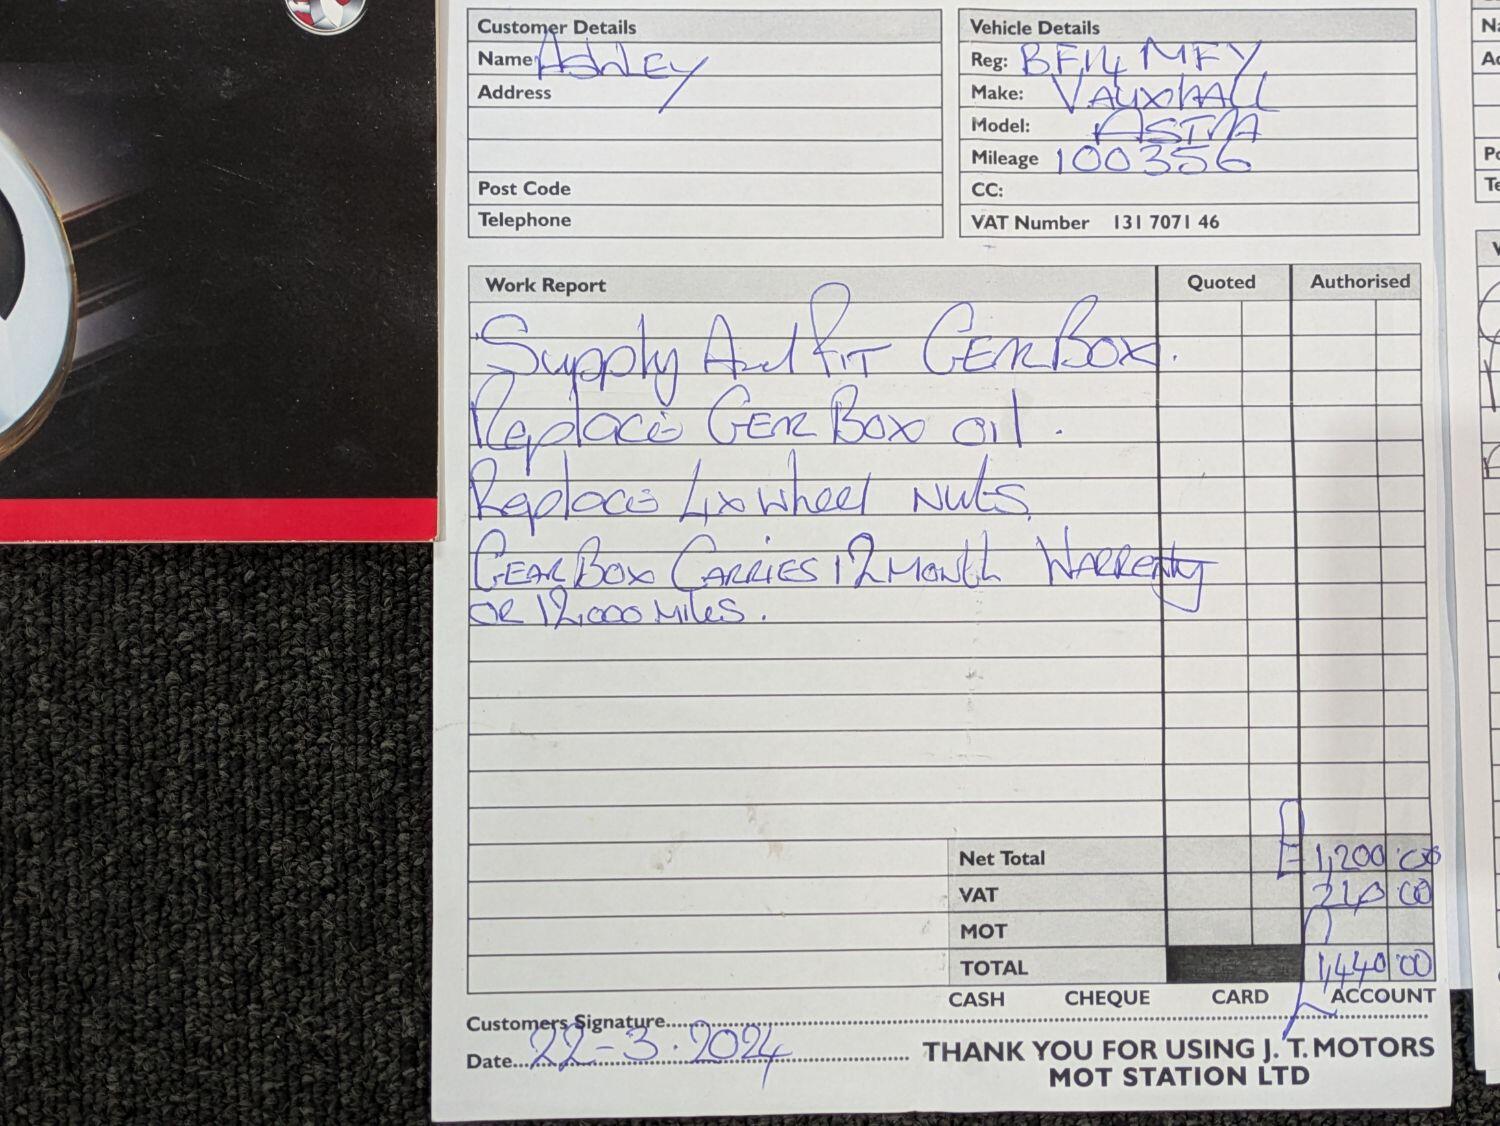 Customer Details
Name Ashley
Address
Post Code
Telephone
Vehicle Details
Reg: BF14 MFY
Make: VAUXHALL
Model: ASTRA
Mileage 100356
CC:
VAT Number 131 7071 46
Work Report Quoted Authorised
Supply And Fit GEARBOX.
Replace GEARBOX oil.
Replace 4x wheel NUTS
GEARBOX CARRIES 12 MONTH WARRENTY
OR 12,000 MILES.
Net Total £1,200.00
VAT 240 00
MOT
TOTAL £1,440 00
CASH CHEQUE CARD ACCOUNT
Customers Signature
Date 22-3.2024
THANK YOU FOR USING J. T. MOTORS
MOT STATION LTD